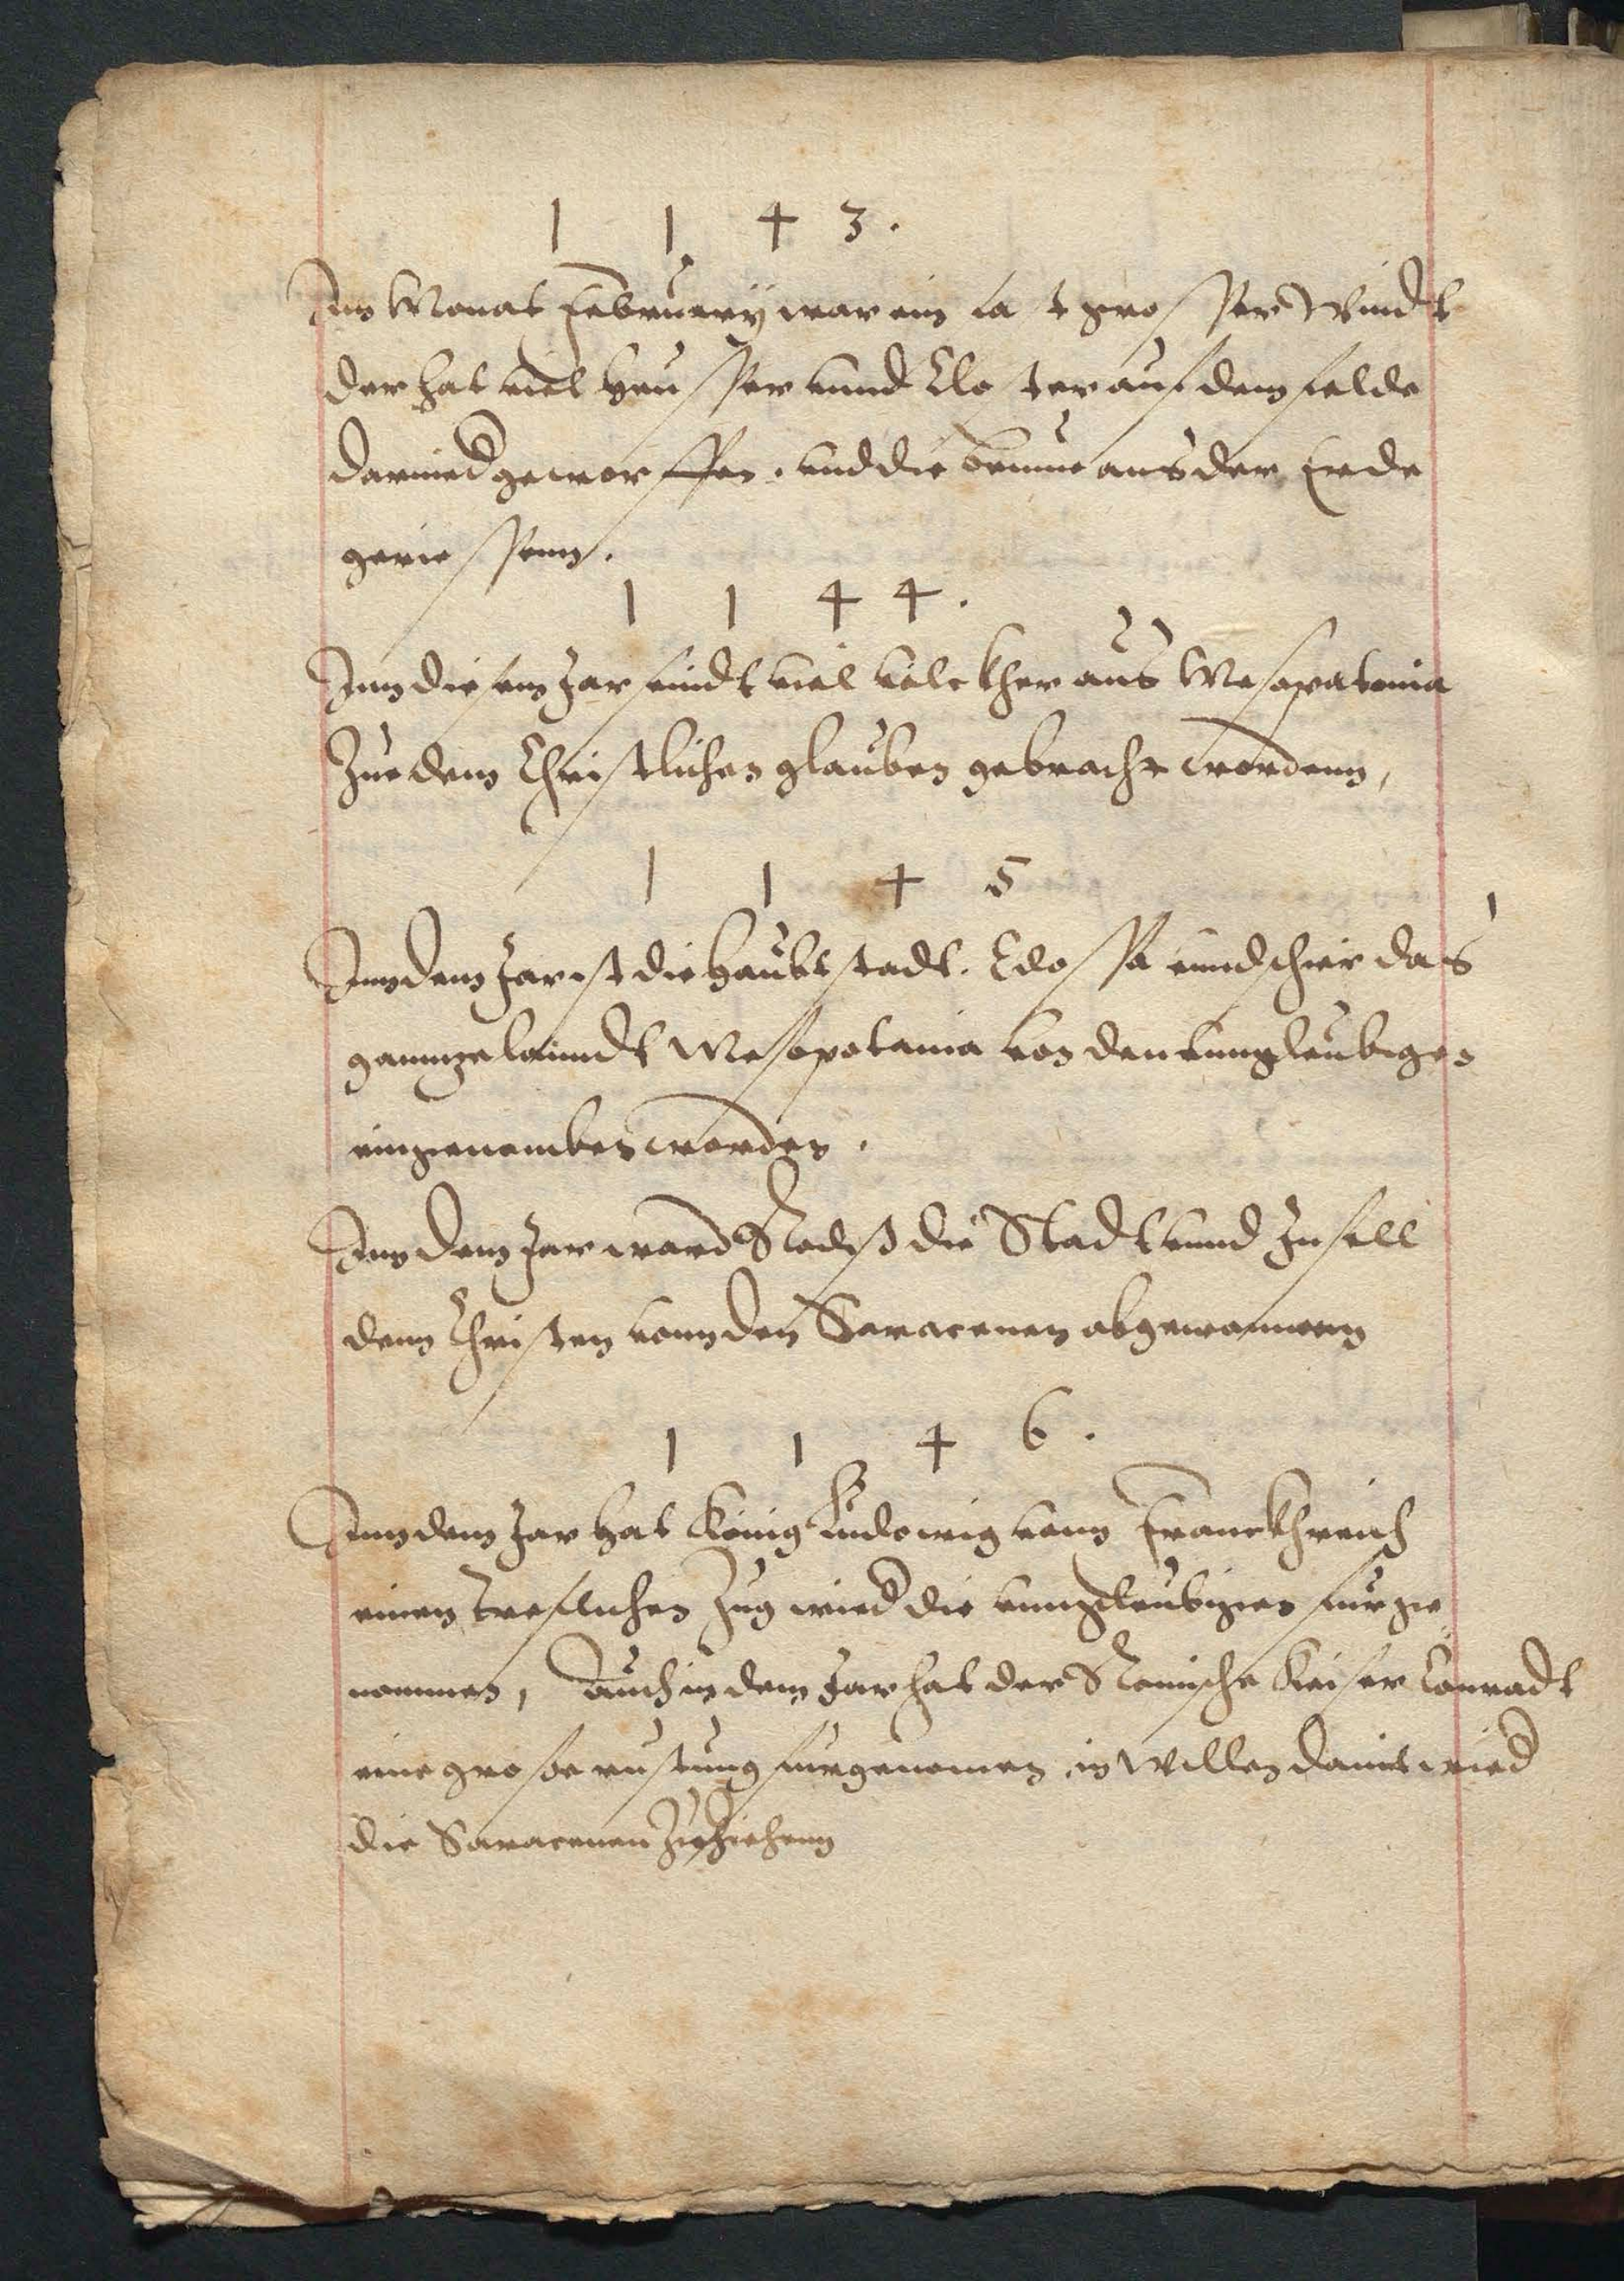 1 1 4 3.
Im Monat Februarÿ war ein fast grosser Windt
der hat viel heusser unnd Closter auf dem felde
darnied geworffen. und die beume aus der Erde
geriessenn.
1 1 4 4.
Inn diesem Jar sindt viel volckher aus Mesopatomia
Zue dem Christlichen glauben gebracht wordenn,
1 1 4 5
Inn dem Jar ist die Haubtstadt. Edossa unnd schir das
gannze lanndt Mesopotamia von den Unngleubigen
eingenomben worden.
Inn dem Jar ward Rodiß die Stadt unnd Insell
denn Christen vonn den Saracenen abgewonnen
1 1 4 6.
Inn dem Jar hat König Ludowig vonn Franckhreich
einen treflichen Zug wied die unngleubigen furge
nommen, Auch in dem Jar hat der Romische Keiser Conradt
eine große rustung furgenomen in Willen damit wied
die Saracenen Zuziehenn